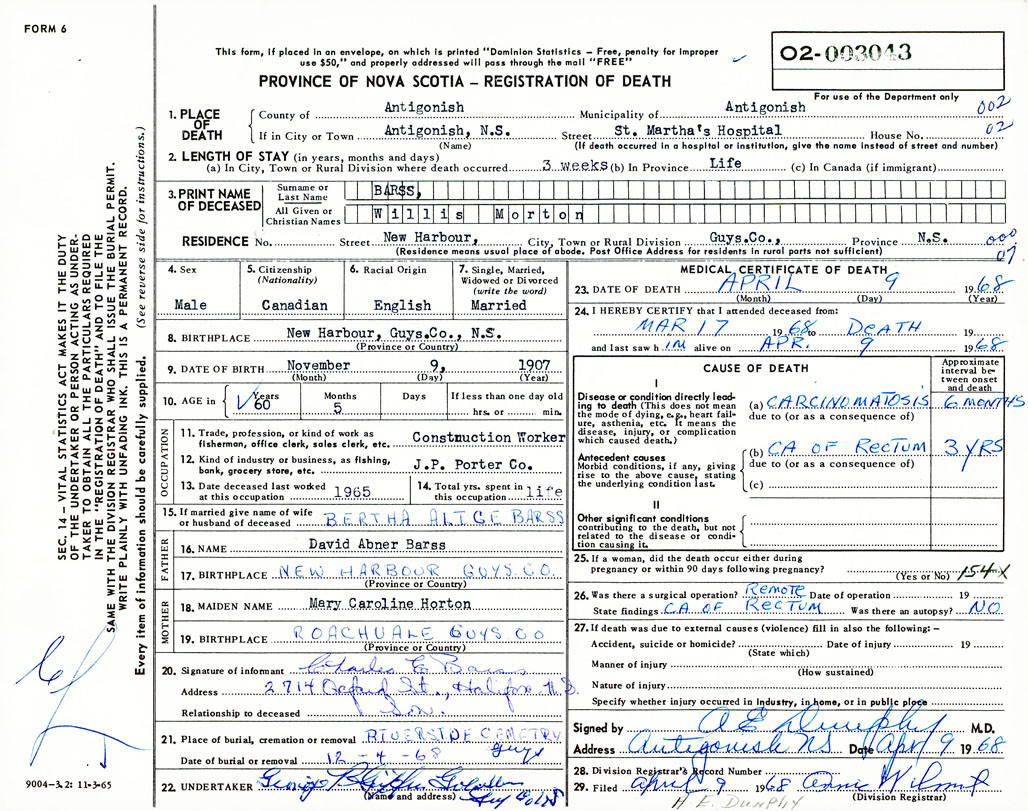 FORM 6
This form, if placed in an envelope, on which is printed "Dominion Statistics – Free, penalty for improper
use $50," and properly addressed will pass through the mail "FREE"
02-003043
PROVINCE OF NOVA SCOTIA – REGISTRATION OF DEATH
For use of the Department only
002
02
1. PLACE OF DEATH
County of Antigonish Municipality of Antigonish
If in City or Town Antigonish, N.S. Street St. Martha's Hospital House No.
(Name) (If death occurred in a hospital or institution, give the name instead of street and number)
2. LENGTH OF STAY (in years, months and days)
(a) In City, Town or Rural Division where death occurred 3 weeks (b) In Province Life (c) In Canada (if immigrant)
3. PRINT NAME OF DECEASED
Surname or Last Name BARSS,
All Given or Christian Names Willis Morton
RESIDENCE No. Street New Harbour, City, Town or Rural Division Guys.Co., Province N.S. 000
(Residence means usual place of abode. Post Office Address for residents in rural parts not sufficient) 07
4. Sex Male
5. Citizenship (Nationality) Canadian
6. Racial Origin English
7. Single, Married, Widowed or Divorced (write the word) Married
8. BIRTHPLACE New Harbour, Guys.Co., N.S.
(Province or Country)
9. DATE OF BIRTH November 9, 1907
(Month) (Day) (Year)
10. AGE in Years 60 Months 5 Days If less than one day old hrs. or min.
OCCUPATION
11. Trade, profession, or kind of work as fisherman, office clerk, sales clerk, etc. Construction Worker
12. Kind of industry or business, as fishing, bank, grocery store, etc. J.P. Porter Co.
13. Date deceased last worked at this occupation 1965
14. Total yrs. spent in this occupation life
15. If married give name of wife or husband of deceased BERTHA ALICE BARSS
FATHER
16. NAME David Abner Barss
17. BIRTHPLACE NEW HARBOUR GUYS CO.
(Province or Country)
MOTHER
18. MAIDEN NAME Mary Caroline Horton
19. BIRTHPLACE ROACHVALE GUYS CO
(Province or Country)
20. Signature of informant Charles E Barss
Address 2714 Oxford St., Halifax N.S.
Relationship to deceased Son.
21. Place of burial, cremation or removal RIVERSIDE CEMETRY
Guys
Date of burial or removal 12-4-68
22. UNDERTAKER
(Name and address)
MEDICAL CERTIFICATE OF DEATH
23. DATE OF DEATH APRIL 9 1968
(Month) (Day) (Year)
24. I HEREBY CERTIFY that I attended deceased from:
MAR 17 1968 to DEATH 19
and last saw him alive on APR. 9 1968
CAUSE OF DEATH
Approximate interval between onset and death
I
Disease or condition directly leading to death (This does not mean the mode of dying, e.g., heart failure, asthenia, etc. It means the disease, injury, or complication which caused death.)
(a) CARCINOMATOSIS 6 MONTHS
due to (or as a consequence of)
Antecedent causes
Morbid conditions, if any, giving rise to the above cause, stating the underlying condition last.
(b) CA OF RECTUM 3 YRS
due to (or as a consequence of)
(c)
II
Other significant conditions
contributing to the death, but not related to the disease or condition causing it.
25. If a woman, did the death occur either during
pregnancy or within 90 days following pregnancy?
(Yes or No) 154X
26. Was there a surgical operation? REMOTE Date of operation 19
State findings CA OF RECTUM Was there an autopsy? NO
27. If death was due to external causes (violence) fill in also the following: –
Accident, suicide or homicide? Date of injury 19
(State which)
Manner of injury
(How sustained)
Nature of injury
Specify whether injury occurred in industry, in home, or in public place
Signed by A E Dunphy M.D.
Address Antigonish NS Date Apr 9 1968
28. Division Registrar's Record Number
29. Filed April 9 1968
(Division Registrar)
H E. DUNPHY
SEC. 14 – VITAL STATISTICS ACT MAKES IT THE DUTY
OF THE UNDERTAKER OR PERSON ACTING AS UNDER-
TAKER TO OBTAIN ALL THE PARTICULARS REQUIRED
IN THE "REGISTRATION OF DEATH" AND TO FILE THE
SAME WITH THE DIVISION REGISTRAR WHO SHALL ISSUE THE BURIAL PERMIT.
WRITE PLAINLY WITH UNFADING INK. THIS IS A PERMANENT RECORD.
Every item of information should be carefully supplied. (See reverse side for instructions.)
9004-3.2: 11-3-65